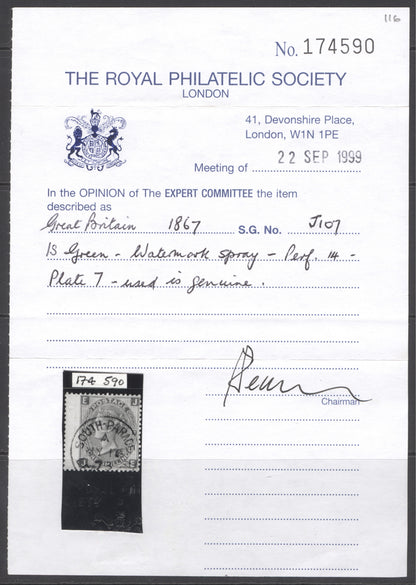 116
No. 174590
THE ROYAL PHILATELIC SOCIETY
LONDON
41, Devonshire Place,
London, W1N 1PE
Meeting of 22 SEP 1999
In the OPINION of The EXPERT COMMITTEE the item
described as
Great Britain 1867 S.G. No. J107
1S Green - Watermark spray - Perf. 14 -
Plate 7 - used is genuine.
Chairman
174 590
E J
SOUTH-PARADE
A
J E